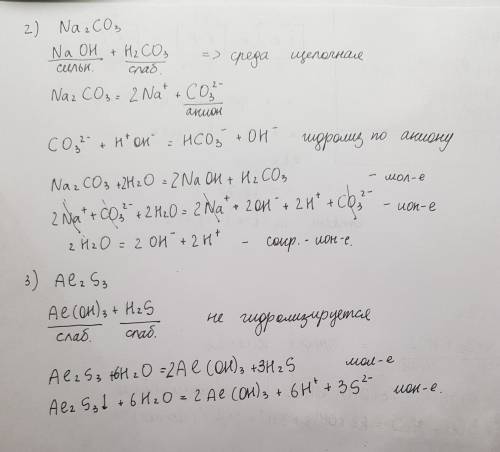 2) Na₂CO₃
NaOH + H₂CO₃ => среда щелочная
сильн. слаб.
Na₂CO₃ = 2Na⁺ + CO₃²⁻
анион
CO₃²⁻ + H⁺OH⁻ = HCO₃⁻ + OH⁻ гидролиз по аниону
Na₂CO₃ + 2H₂O = 2NaOH + H₂CO₃ - мол-е
2Na⁺ + CO₃²⁻ + 2H₂O = 2Na⁺ + 2OH⁻ + 2H⁺ + CO₃²⁻ - ион-е
2H₂O = 2OH⁻ + 2H⁺ - сокр.-ион-е.
3) Al₂S₃
Al(OH)₃ + H₂S не гидролизируется
слаб. слаб.
Al₂S₃ + 6H₂O = 2Al(OH)₃ + 3H₂S мол-е
Al₂S₃↓ + 6H₂O = 2Al(OH)₃ + 6H⁺ + 3S²⁻ ион-е.